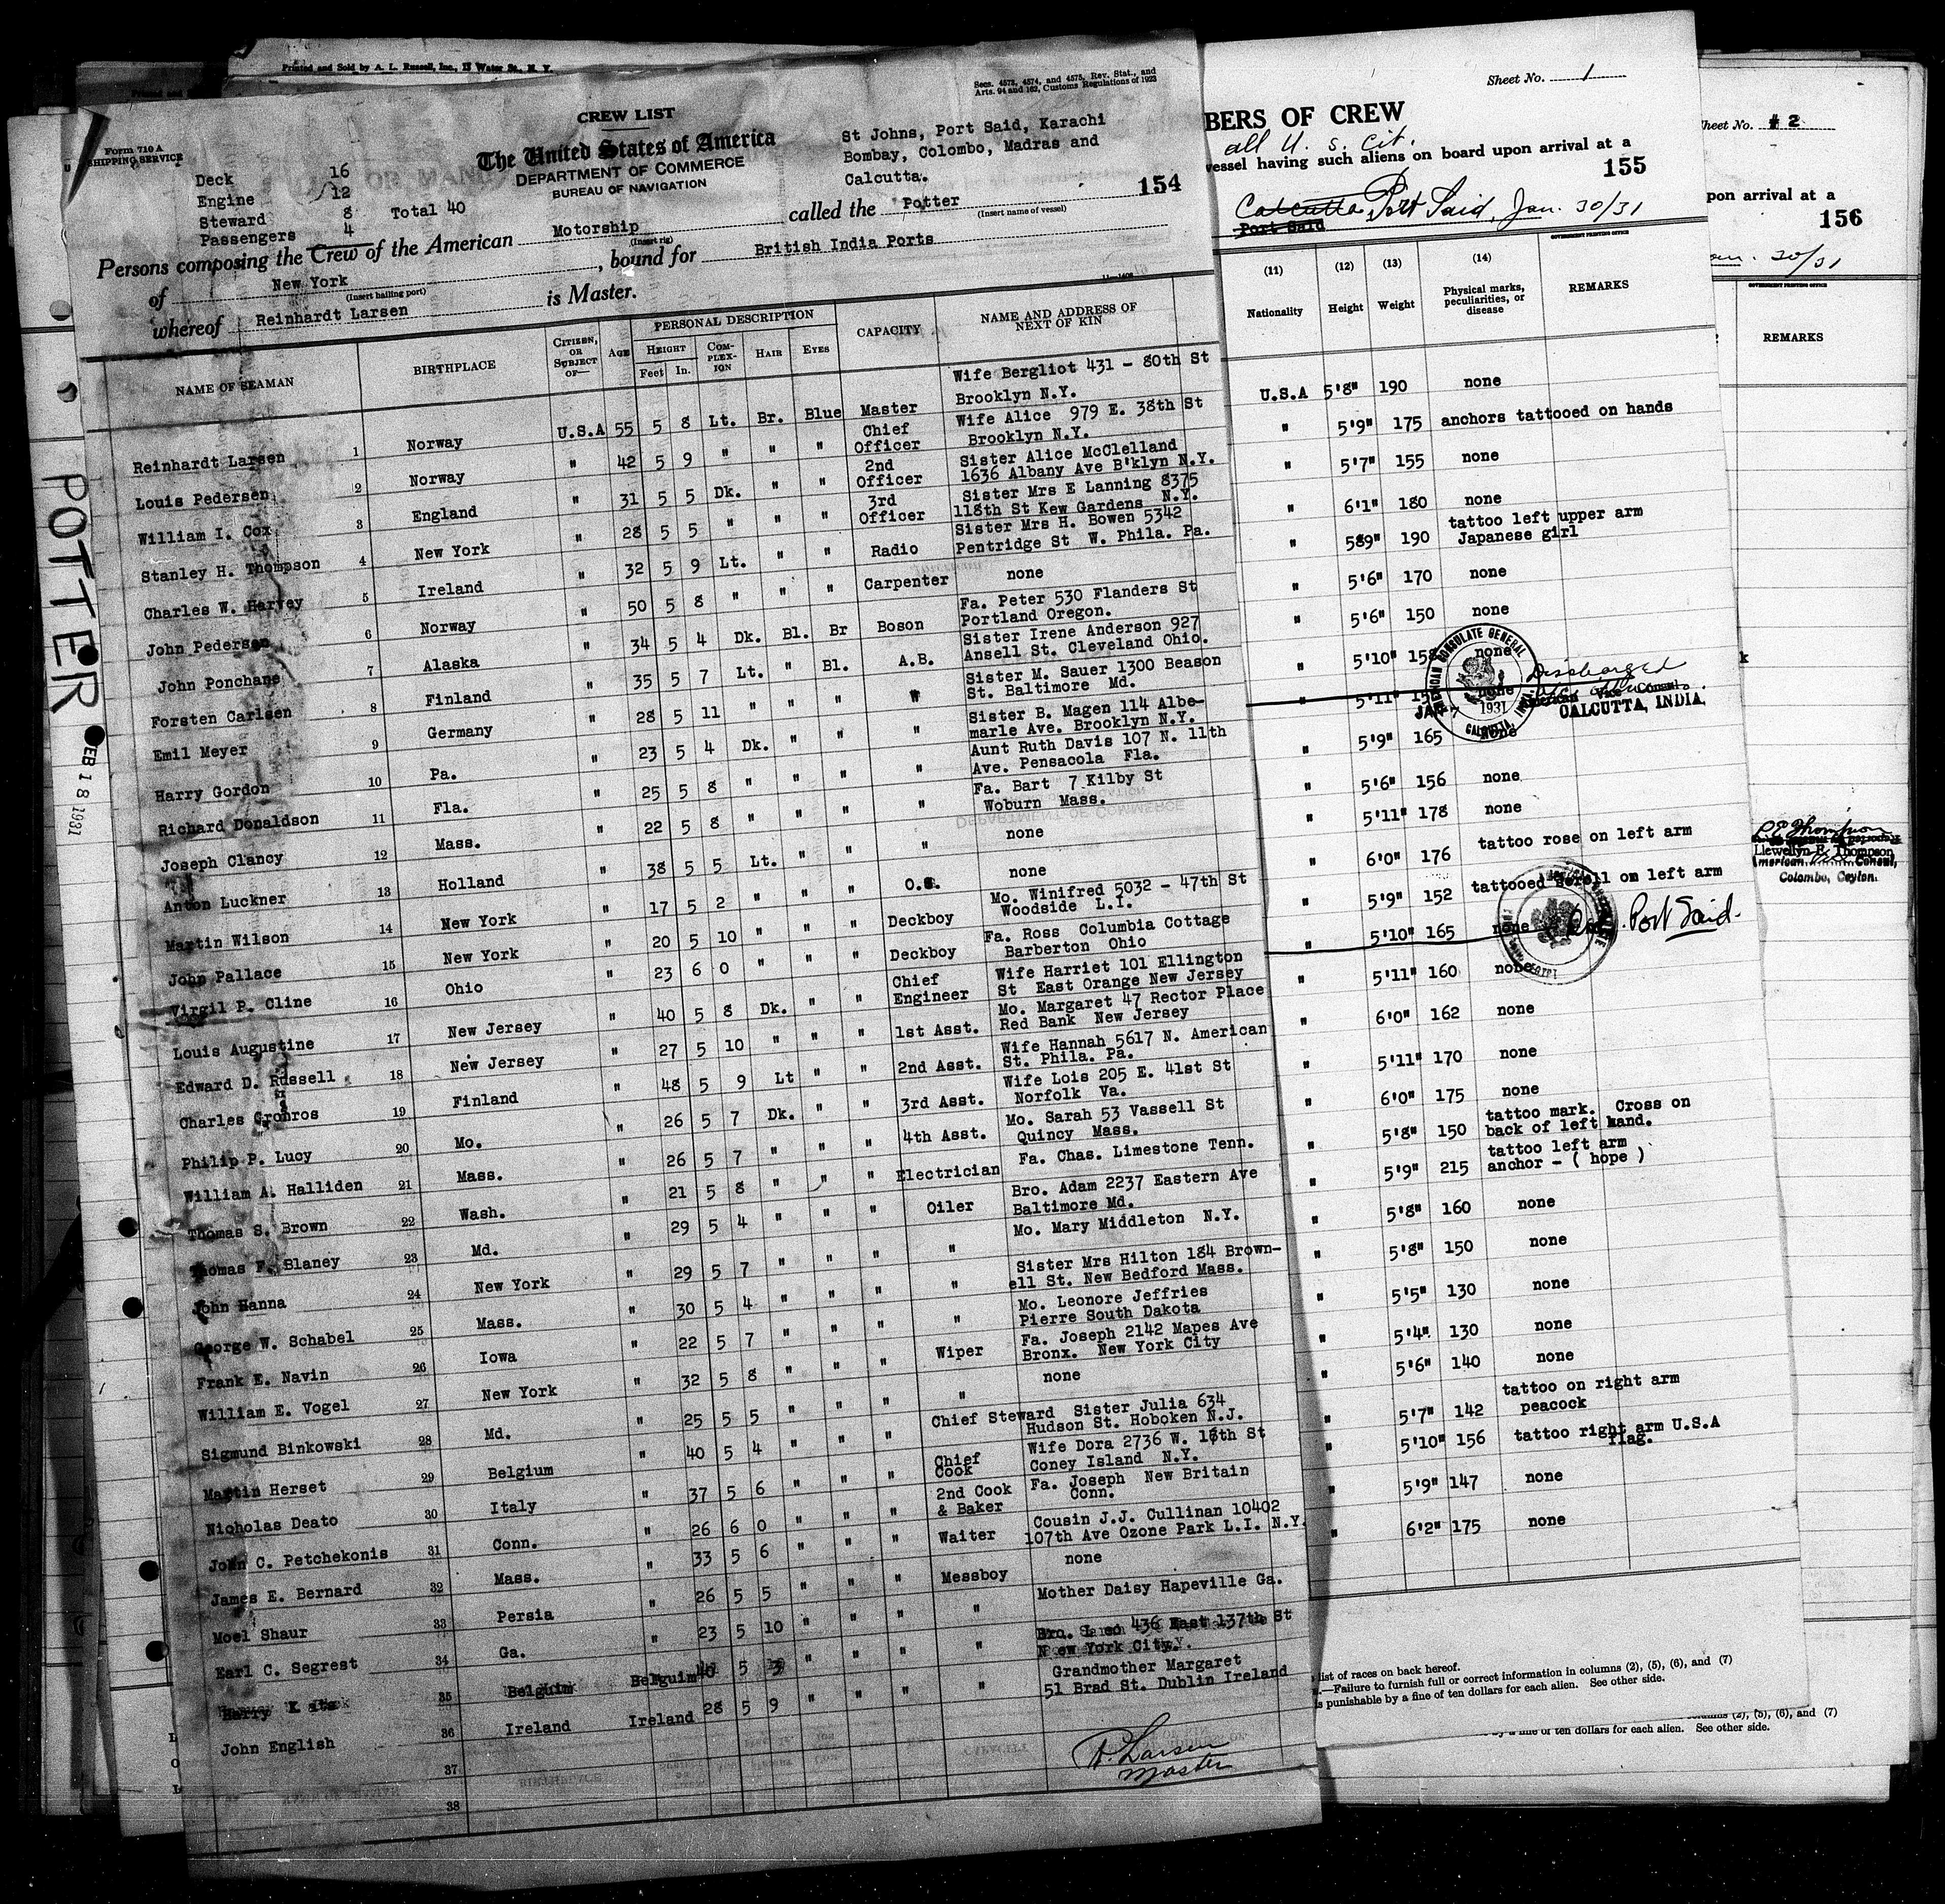 Printed and Sold by A. L. Russell, Inc., 17 Water St., N. Y.
Secs. 4573, 4574, and 4575, Rev. Stat., and
Arts. 94 and 162, Customs Regulations of 1923
Form 710 A
SHIPPING SERVICE
CREW LIST
The United States of America
DEPARTMENT OF COMMERCE
BUREAU OF NAVIGATION
St Johns, Port Said, Karachi
Bombay, Colombo, Madras and
Calcutta.
154
Deck 16
Engine 12
Steward 8 Total 40
Passengers 4
Persons composing the Crew of the American Motorship called the Potter
(Insert rig) (Insert name of vessel)
of New York, bound for British India Ports
(Insert hailing port)
whereof Reinhardt Larsen is Master.
NAME OF SEAMAN BIRTHPLACE CITIZEN, OR SUBJECT OF— AGE PERSONAL DESCRIPTION CAPACITY NAME AND ADDRESS OF NEXT OF KIN
HEIGHT COMPLEXION HAIR EYES
Feet In.
Reinhardt Larsen 1 Norway U.S.A 55 5 8 Lt. Br. Blue Master Wife Bergliot 431 - 80th St
Brooklyn N.Y.
Louis Pedersen 2 Norway " 42 5 9 " " " Chief Officer Wife Alice 979 E. 38th St
Brooklyn N.Y.
William I. Cox 3 England " 31 5 5 Dk. " " 2nd Officer Sister Alice McClelland
1636 Albany Ave B'klyn N.Y.
Stanley H. Thompson 4 New York " 28 5 5 " " " 3rd Officer Sister Mrs E Lanning 8375
118th St Kew Gardens N.Y.
Charles W. Harvey 5 Ireland " 32 5 9 Lt. " " Radio Sister Mrs H. Bowen 5342
Pentridge St W. Phila. Pa.
John Pedersen 6 Norway " 50 5 8 " " " Carpenter none
John Ponchane 7 Alaska " 34 5 4 Dk. Bl. Br Boson Fa. Peter 530 Flanders St
Portland Oregon.
Forsten Carlsen 8 Finland " 35 5 7 Lt. " Bl. A.B. Sister Irene Anderson 927
Ansell St. Cleveland Ohio.
Emil Meyer 9 Germany " 28 5 11 " " " " Sister M. Sauer 1300 Beason
St. Baltimore Md.
Harry Gordon 10 Pa. " 23 5 4 Dk. " " " Sister B. Magen 114 Albe-
marle Ave. Brooklyn N.Y.
Richard Donaldson 11 Fla. " 25 5 8 " " " " Aunt Ruth Davis 107 N. 11th
Ave. Pensacola Fla.
Joseph Clancy 12 Mass. " 22 5 8 " " " " Fa. Bart 7 Kilby St
Woburn Mass.
Anton Luckner 13 Holland " 38 5 5 Lt. " " " none
Martin Wilson 14 New York " 17 5 2 " " " O.S. none
John Pallace 15 New York " 20 5 10 " " " Deckboy Mo. Winifred 5032 - 47th St
Woodside L.I.
Virgil P. Cline 16 Ohio " 23 6 0 " " " Deckboy Fa. Ross Columbia Cottage
Barberton Ohio
Louis Augustine 17 New Jersey " 40 5 8 Dk. " " Chief Engineer Wife Harriet 101 Ellington
St East Orange New Jersey
Edward D. Russell 18 New Jersey " 27 5 10 " " " 1st Asst. Mo. Margaret 47 Rector Place
Red Bank New Jersey
Charles Gronros 19 Finland " 48 5 9 Lt " " 2nd Asst. Wife Hannah 5617 N. American
St. Phila. Pa.
Philip P. Lucy 20 Mo. " 26 5 7 Dk. " " 3rd Asst. Wife Lois 205 E. 41st St
Norfolk Va.
William A. Halliden 21 Mass. " 26 5 7 " " " 4th Asst. Mo. Sarah 53 Vassell St
Quincy Mass.
Thomas S. Brown 22 Wash. " 21 5 8 " " " Electrician Fa. Chas. Limestone Tenn.
Thomas F. Blaney 23 Md. " 29 5 4 " " " Oiler Bro. Adam 2237 Eastern Ave
Baltimore Md.
John Hanna 24 New York " 29 5 7 " " " " Mo. Mary Middleton N.Y.
George W. Schabel 25 Mass. " 30 5 4 " " " " Sister Mrs Hilton 184 Brown-
ell St. New Bedford Mass.
Frank E. Navin 26 Iowa " 22 5 7 " " " " Mo. Leonore Jeffries
Pierre South Dakota
William E. Vogel 27 New York " 32 5 8 " " " Wiper Fa. Joseph 2142 Mapes Ave
Bronx. New York City
Sigmund Binkowski 28 Md. " 25 5 5 " " " " none
Martin Herset 29 Belgium " 40 5 4 " " " Chief Steward Sister Julia 634
Hudson St. Hoboken N.J.
Nicholas Deato 30 Italy " 37 5 6 " " " Chief Cook Wife Dora 2736 W. 15th St
Coney Island N.Y.
John C. Petchekonis 31 Conn. " 26 6 0 " " " 2nd Cook & Baker Fa. Joseph New Britain
Conn.
James E. Bernard 32 Mass. " 33 5 6 " " " Waiter Cousin J.J. Cullinan 10402
107th Ave Ozone Park L.I. N.Y.
Moel Shaur 33 Persia " 26 5 5 " " " Messboy none
Earl C. Segrest 34 Ga. " 23 5 10 " " " " Mother Daisy Hapeville Ga.
Harry 35 Belguim Belguim 5 " " " " Bro. 436 East 137th St
New York City.
John English 36 Ireland Ireland 28 5 9 " " " " Grandmother Margaret
51 Brad St. Dublin Ireland
37
38
R. Larsen
Master
POTTER
FEB 18 1931
Sheet No. 1
BERS OF CREW
all U. S. Cit.
vessel having such aliens on board upon arrival at a
155
Calcutta Port Said, Jan. 30/31
Port Said
GOVERNMENT PRINTING OFFICE
(11) (12) (13) (14)
Nationality Height Weight Physical marks, peculiarities, or disease REMARKS
U.S.A 5'8" 190 none
" 5'9" 175 anchors tattooed on hands
" 5'7" 155 none
" 6'1" 180 none
" 589" 190 tattoo left upper arm
Japanese girl
" 5'6" 170 none
" 5'6" 150 none
" 5'10" 158 none
5'11" none
Discharged
AMERICAN CONSULATE GENERAL
CALCUTTA, INDIA
JAN 7 1931
American Vice Consul
CALCUTTA, INDIA.
" 5'9" 165 none
" 5'6" 156 none
" 5'11" 178 none
" 6'0" 176 tattoo rose on left arm
" 5'9" 152 tattooed scroll on left arm
" 5'10" 165 none Port Said.
" 5'11" 160 none
" 6'0" 162 none
" 5'11" 170 none
" 6'0" 175 none
" 5'8" 150 tattoo mark. Cross on
back of left hand.
" 5'9" 215 tattoo left arm
anchor - ( hope )
" 5'8" 160 none
" 5'8" 150 none
" 5'5" 130 none
" 5'4" 130 none
" 5'6" 140 none
" 5'7" 142 tattoo on right arm
peacock
" 5'10" 156 tattoo right arm U.S.A
flag.
" 5'9" 147 none
" 6'2" 175 none
list of races on back hereof.
.—Failure to furnish full or correct information in columns (2), (5), (6), and (7)
is punishable by a fine of ten dollars for each alien. See other side.
Sheet No. # 2
upon arrival at a
156
Jan. 30/31
GOVERNMENT PRINTING OFFICE
REMARKS
Llewellyn E. Thompson
American Vice Consul,
Colombo, Ceylon.
columns (2), (5), (6), and (7)
by a fine of ten dollars for each alien. See other side.